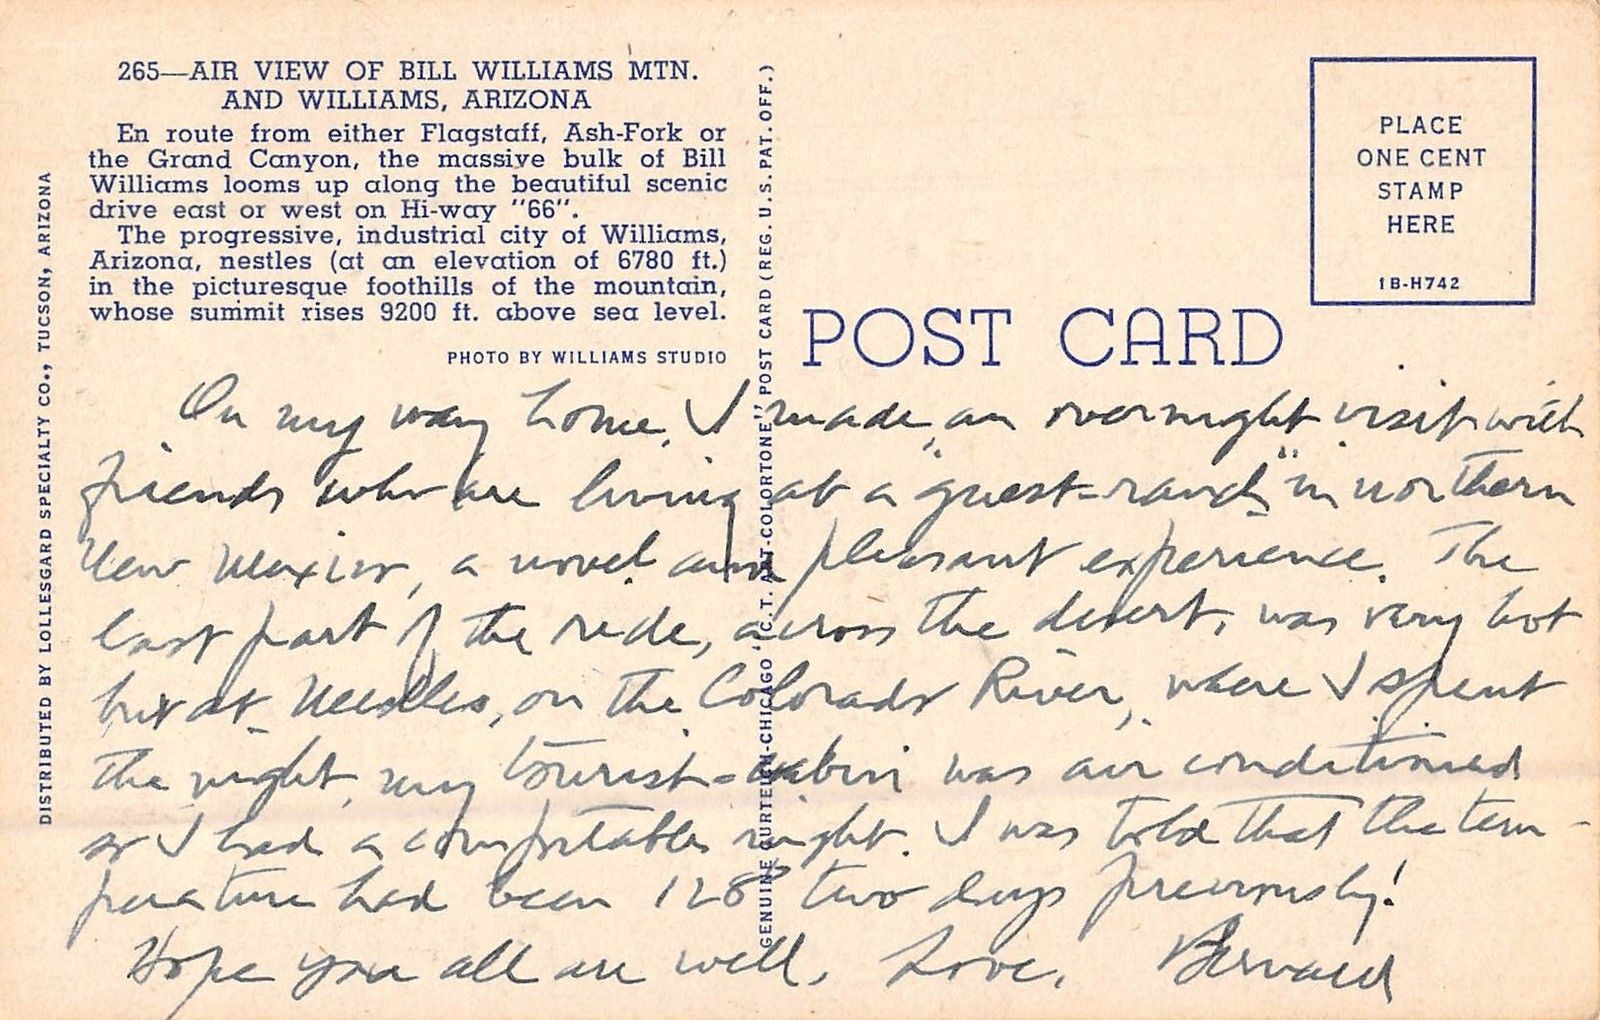 265—AIR VIEW OF BILL WILLIAMS MTN.
AND WILLIAMS, ARIZONA
En route from either Flagstaff, Ash-Fork or
the Grand Canyon, the massive bulk of Bill
Williams looms up along the beautiful scenic
drive east or west on Hi-way "66".
The progressive, industrial city of Williams,
Arizona, nestles (at an elevation of 6780 ft.)
in the picturesque foothills of the mountain,
whose summit rises 9200 ft. above sea level.
PHOTO BY WILLIAMS STUDIO
DISTRIBUTED BY LOLLESGARD SPECIALTY CO., TUCSON, ARIZONA
GENUINE CURTEICH-CHICAGO "C.T. ART-COLORTONE" POST CARD (REG. U.S. PAT. OFF.)
POST CARD
PLACE
ONE CENT
STAMP
HERE
1B-H742
On my way home, I made an overnight visit with
friends who are living at a "guest-ranch" in northern
New Mexico, a novel and pleasant experience. The
last part of the ride, across the desert, was very hot
but at Needles, on the Colorado River, where I spent
the night, my tourist-cabin was air conditioned
so I had a comfortable night. I was told that the tem-
perature had been 128° two days previously!
Hope you all are well. Love, Bernard